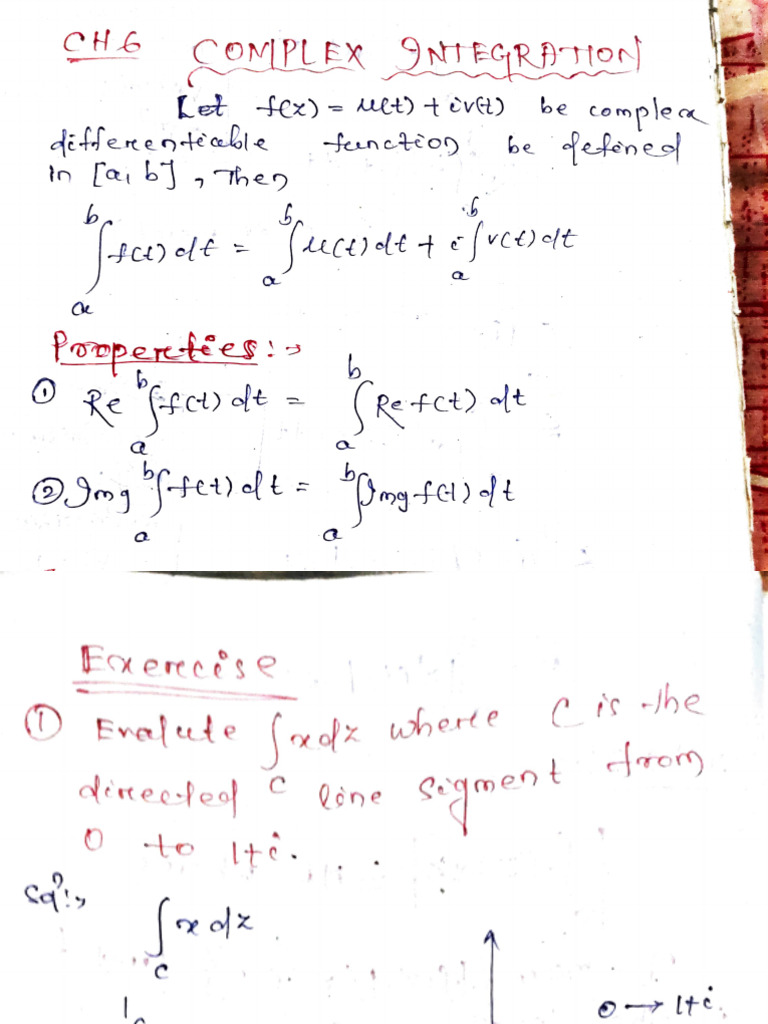 CH 6 COMPLEX INTEGRATION
Let f(x) = u(t) + iv(t) be complex
differenticable function be defined
in [a, b] , Then
∫_a^b f(t) dt = ∫_a^b u(t) dt + i ∫_a^b v(t) dt
Properties :→
① Re ∫_a^b f(t) dt = ∫_a^b Re f(t) dt
② Img ∫_a^b f(t) dt = ∫_a^b Img f(t) dt
Exercise
① Evalute ∫_C x dz where C is the
directed line segment from
0 to 1+i.
Sol?:→
∫_C x dz
0 → 1+i